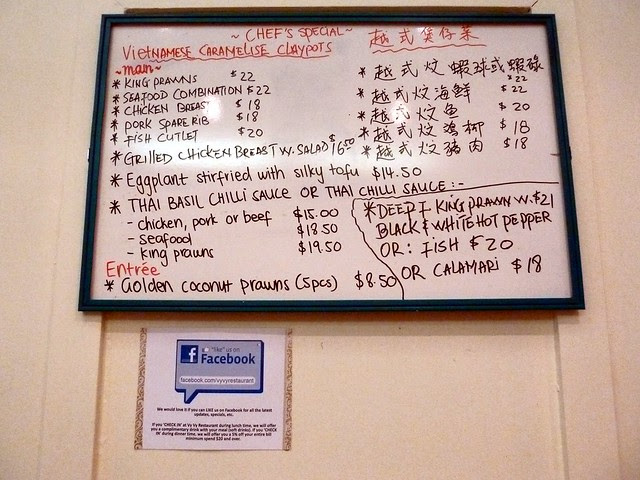 ~ CHEF'S SPECIAL ~
VIETNAMESE CARAMELISE CLAYPOTS
~main~
* KING PRAWNS $22
* SEAFOOD COMBINATION $22
* CHICKEN BREAST $18
* PORK SPARE RIB $18
* FISH CUTLET $20
* GRILLED CHICKEN BREAST W. SALAD $16.50
* Eggplant stirfried with silky tofu $14.50
* THAI BASIL CHILLI SAUCE OR THAI CHILLI SAUCE :-
- chicken, pork or beef $15.00
- seafood $18.50
- king prawns $19.50
Entrée
* Golden coconut prawns (5pcs) $8.50
越式煲仔菜
* 越式炆蝦球或蝦碌 $22
* 越式炆海鮮 $22
* 越式炆魚 $20
* 越式炆鸡柳 $18
* 越式炆豬肉 $18
* DEEP F KING PRAWN W. $21
BLACK & WHITE HOT PEPPER
OR: FISH $20
OR CALAMARI $18
"like" us on
Facebook
facebook.com/vyvyrestaurant
We would love it if you can LIKE us on Facebook for all the latest
updates, specials, etc.
If you 'CHECK IN' at Vy Vy Restaurant during lunch time, we will offer
you a complimentary drink with your meal (soft drinks). If you 'CHECK
IN' during dinner time, we will offer you a 5% off your entire bill
minimum spend $30 and over.